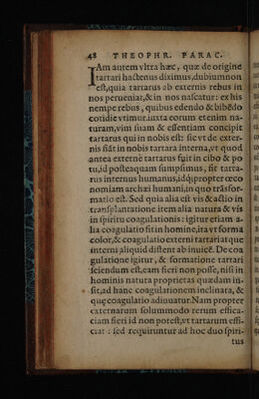 48 THEOPHR. PARAC.
IAm autem vltra hæc, quæ de origine
tartari hactenus diximus, dubium non
est, quia tartarus ab externis rebus in
nos perueniat, & in nos nascatur: ex his
nempe rebus, quibus edendo & bibẽdo
cotidie vtimur. iuxta eorum etenim na-
turam, vim suam & essentiam concipit
tartarus qui in nobis est: sic vt de exter-
nis fiãt in nobis tartara interna, vt quod
antea externẽ tartarus fuit in cibo & po
tu, id posteaquam sumpsimus, fit tarta-
rus internus humanus, idq; propter œco
nomiam archæi humani, in quo trãsfor-
matio est. Sed quia alia est vis & actio in
transplantatione item alia natura & vis
in spiritu coagulationis: igitur etiam a-
lia coagulatio fit in homine, ita vt forma
color, & coagulatio externi tartari atque
interni aliquid distent ab inuicẽ. De coa
gulatione igitur, & formatione tartari
sciendum est, eam fieri non posse, nisi in
hominis natura proprietas quædam in-
sit, ad hanc coagulationem inclinata, &
quę coagulatio adiuuatur. Nam propter
externarum solummodo rerum effica-
ciam fieri id non potest, vt tartarum effi-
ciat: sed requiruntur ad hoc duo spiri-
tus